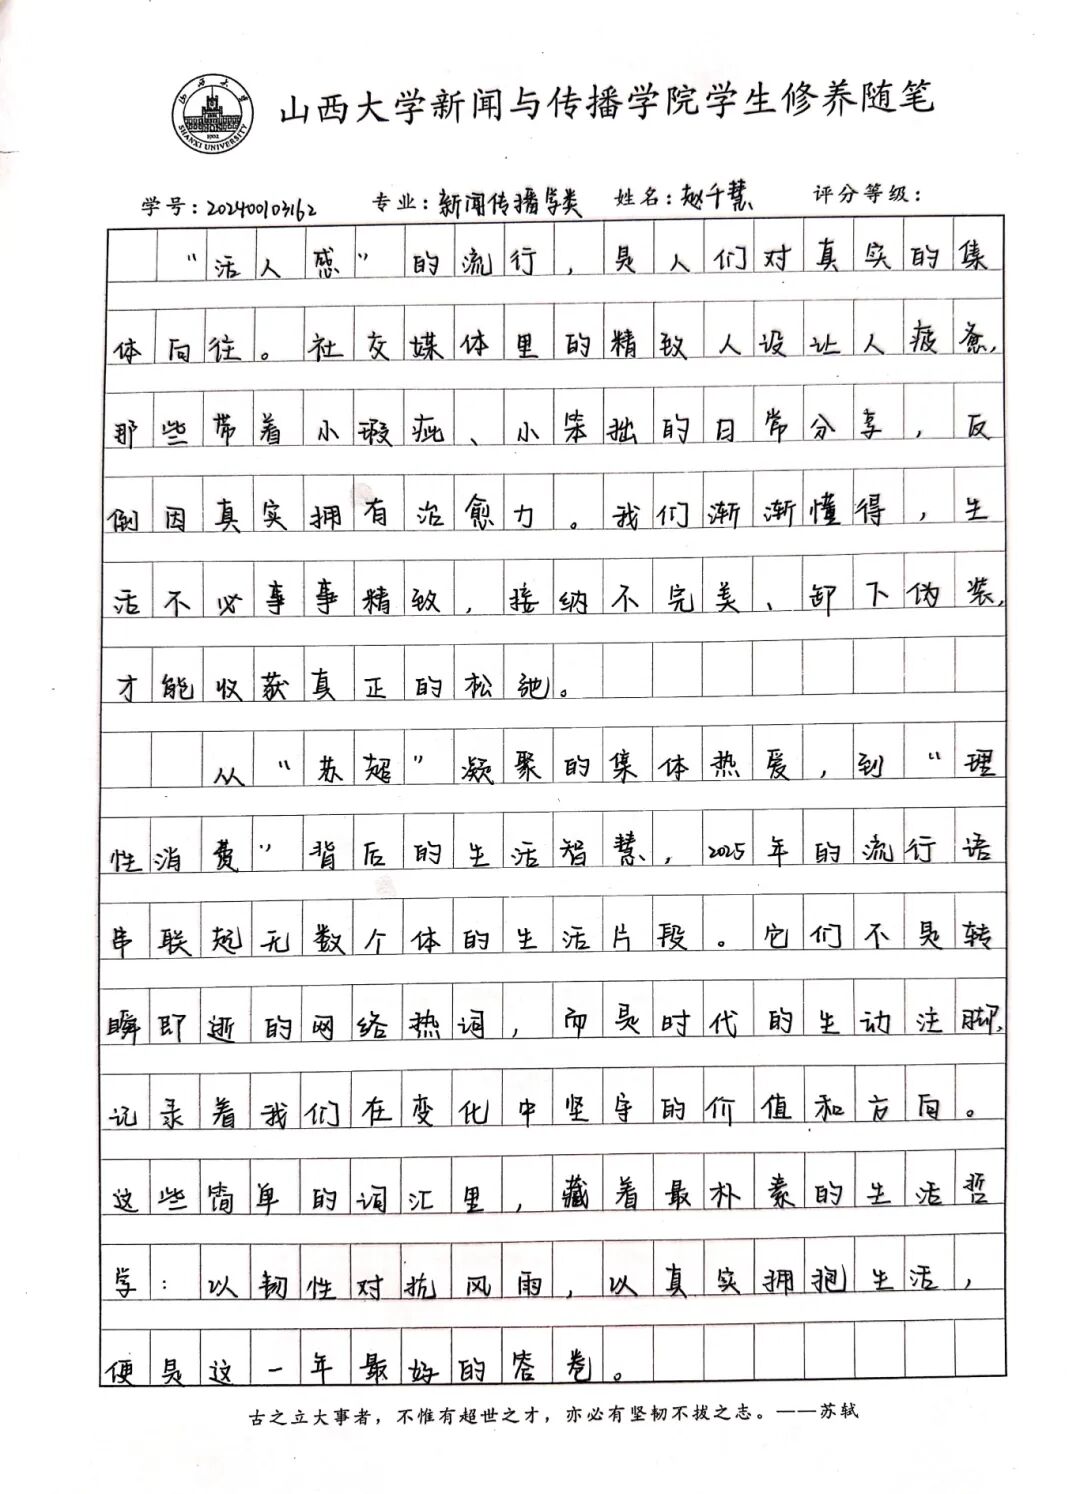 山西大学
SHANXI UNIVERSITY
1902
山西大学新闻与传播学院学生修养随笔
学号：20240010103162 专业：新闻传播学类 姓名：赵千慧 评分等级：
“活人感”的流行，是人们对真实的集
体向往。社交媒体里的精致人设让人疲惫，
那些带着小瑕疵、小笨拙的日常分享，反
倒因真实拥有治愈力。我们渐渐懂得，生
活不必事事精致，接纳不完美、卸下伪装，
才能收获真正的松弛。
从“苏超”凝聚的集体热爱，到“理
性消费”背后的生活智慧，2025年的流行语
串联起无数个体的生活片段。它们不是转
瞬即逝的网络热词，而是时代的生动注脚，
记录着我们在变化中坚守的价值和方向。
这些简单的词汇里，藏着最朴素的生活哲
学：以韧性对抗风雨，以真实拥抱生活，
便是这一年最好的答卷。
古之立大事者，不惟有超世之才，亦必有坚韧不拔之志。——苏轼